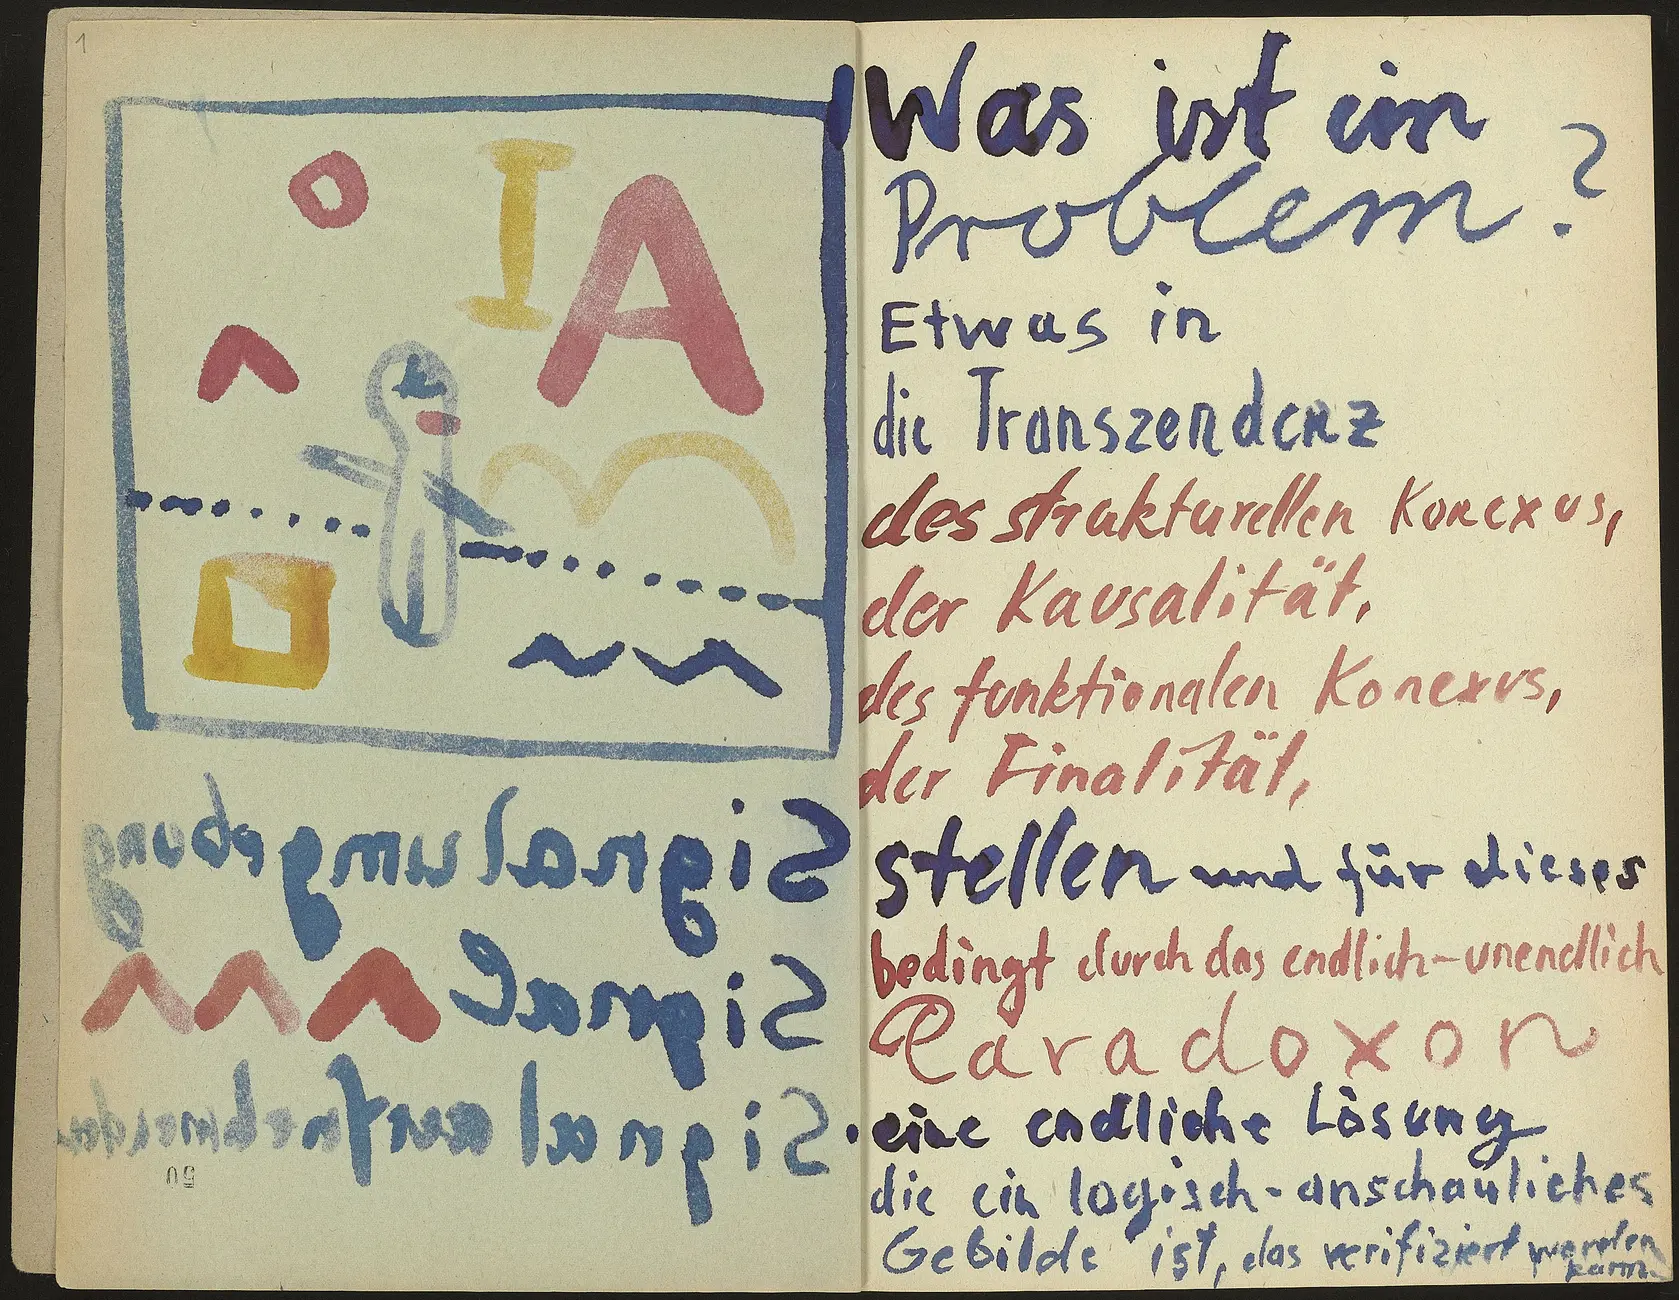 1
I A
Signalumgebung
Signale
Signal
50
Was ist ein
Problem?
Etwas in
die Transzendenz
des strukturellen Konexus,
der Kausalität,
des funktionalen Konexus,
der Finalität,
stellen und für dieses
bedingt durch das endlich-unendlich
Paradoxon
eine endliche Lösung
die ein logisch-anschauliches
Gebilde ist, das verifiziert werden
kann.